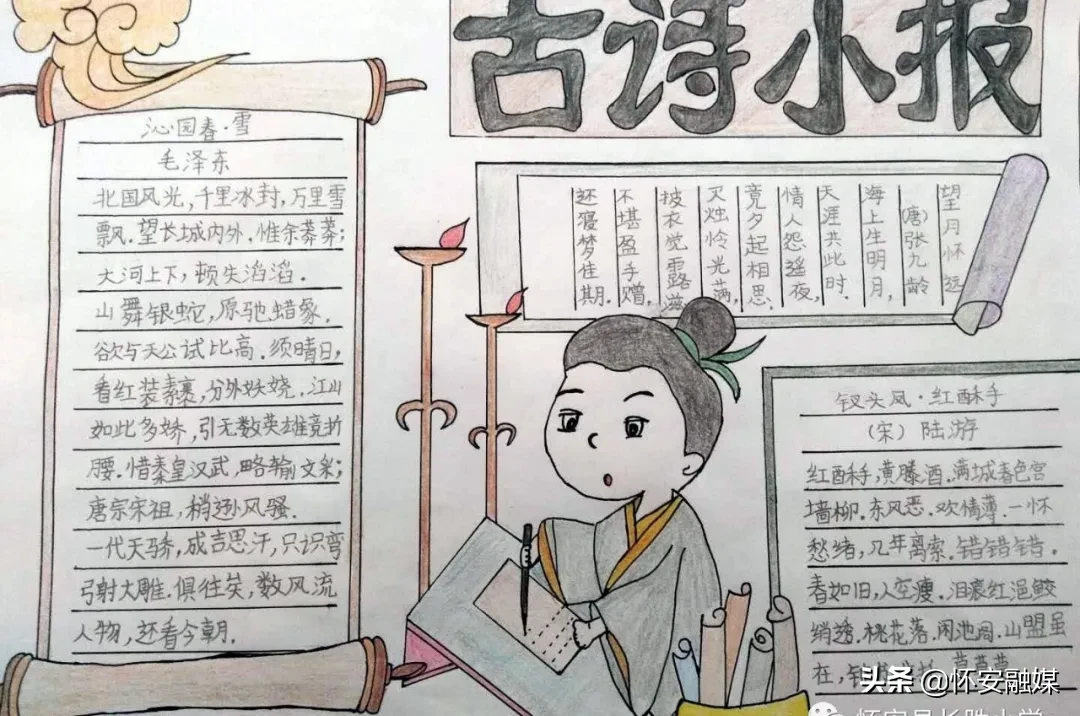 古诗小报
沁园春·雪
毛泽东
北国风光,千里冰封,万里雪
飘.望长城内外,惟余莽莽;
大河上下,顿失滔滔.
山舞银蛇,原驰蜡象.
欲与天公试比高.须晴日,
看红装素裹,分外妖娆,江山
如此多娇,引无数英雄竞折
腰.惜秦皇汉武,略输文采;
唐宗宋祖,稍逊风骚.
一代天骄,成吉思汗,只识弯
弓射大雕.俱往矣,数风流
人物,还看今朝.
望月怀远
(唐)张九龄
海上生明月,
天涯共此时.
情人怨遥夜,
竟夕起相思.
灭烛怜光满,
披衣觉露滋
不堪盈手赠,
还寝梦佳期.
钗头凤·红酥手
(宋)陆游
红酥手,黄滕酒.满城春色宫
墙柳.东风恶.欢情薄.一怀
愁绪,几年离索.错错错.
春如旧,人空瘦.泪痕红浥鲛
绡透.桃花落.闲池阁.山盟虽
在,
头条 @怀安融媒